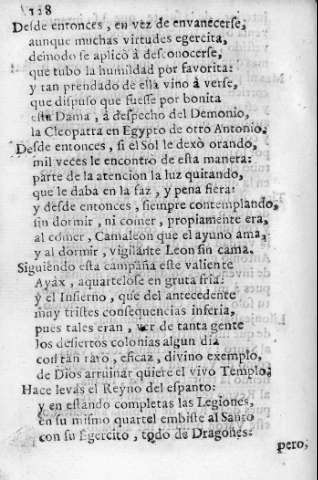 128
Desde entonces, en vez de envanecerse,
aunque muchas virtudes egercita,
de modo se aplicò à desconocerse,
que tubo la humildad por favorita:
y tan prendado de ella vino à verse,
que dispuso que fuesse por bonita
esta Dama, à despecho del Demonio,
la Cleopatra en Egypto de otro Antonio.
Desde entonces, si el Sol le dexò orando,
mil veces le encontrò de esta manera:
parte de la atencion la luz quitando,
que le daba en la faz, y pena fiera:
y desde entonces, siempre contemplando,
sin dormir, ni comer, propiamente era,
al comer, Camaleon que el ayuno ama,
y al dormir, vigilante Leon sin cama.
Siguiendo esta campaña este valiente
Ayax, aquartelose en gruta fria:
y el Infierno, que del antecedente
muy tristes consequencias inferia,
pues tales eran, ver de tanta gente
los desiertos colonias algun dia
con tan raro, eficaz, divino exemplo,
de Dios arruinar quiere el vivo Templo.
Hace levas el Reyno del espanto:
y en estando completas las Legiones,
en su mismo quartel embiste al Santo
con su Egercito, todo de Dragones:
pero,